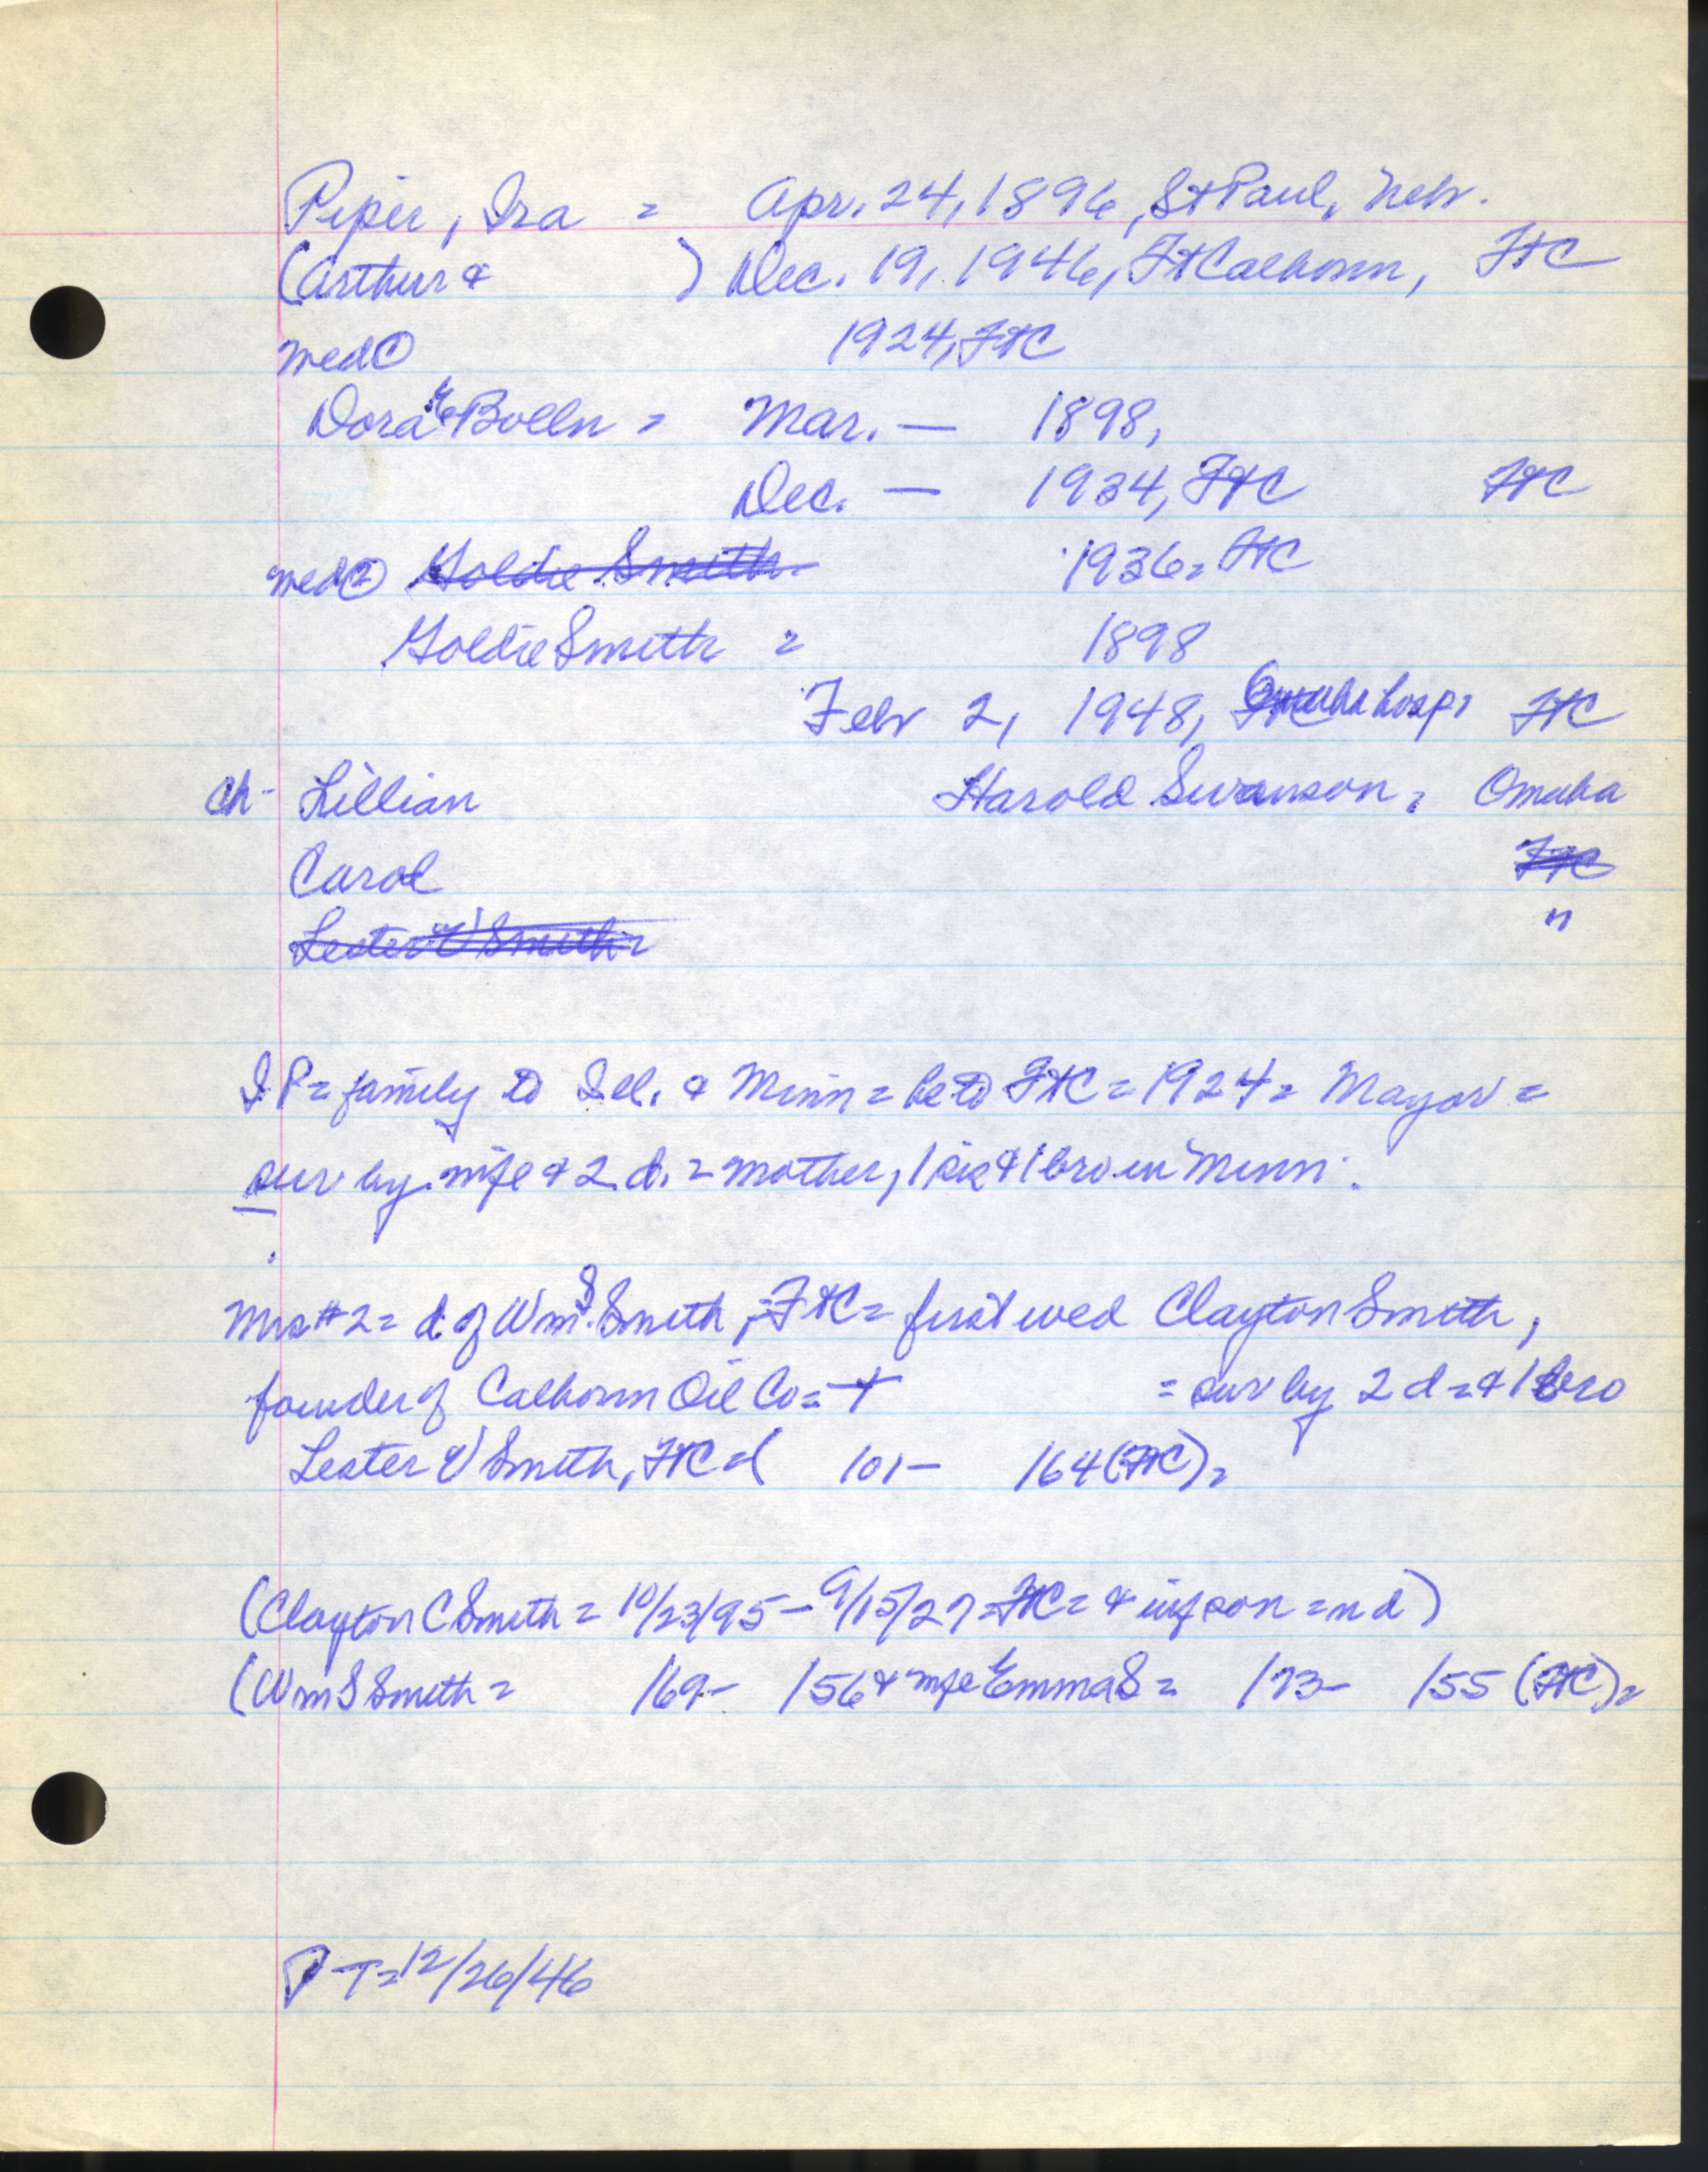 Piper, Ira = Apr. 24, 1896, St Paul, Nebr.
(Arthur & ) Dec. 19, 1946, Ft Calhoun, FtC
wed ① 1924, FtC
Dora Bolln = Mar. — 1898,
Dec. — 1934, FtC FtC
wed ② Goldie Smith 1936 = FtC
Goldie Smith = 1898
Febr 2, 1948, Omaha hosp, FtC
Ch - Lillian Harold Swanson, Omaha
Carol FtC
Lester V Smith "
I P = family to Ill. & Minn = he to FtC = 1924 = Mayor =
sur by wife & 2 d. = mother, 1 sis & 1 bro in Minn.
Mrs #2 = d of Wm S Smith, FtC = first wed Clayton Smith,
founder of Calhoun Oil Co = + = sur by 2 d = & 1 bro
Lester V Smith, FtC = ( 101 - 164 (FtC) =
(Clayton C Smith = 10/23/95 - 9/15/27 = FtC = & inf son = n d)
(Wm S Smith = /69 - /56 & wife Emma S = /73 - /55 (FtC) =
P-T = 12/26/46